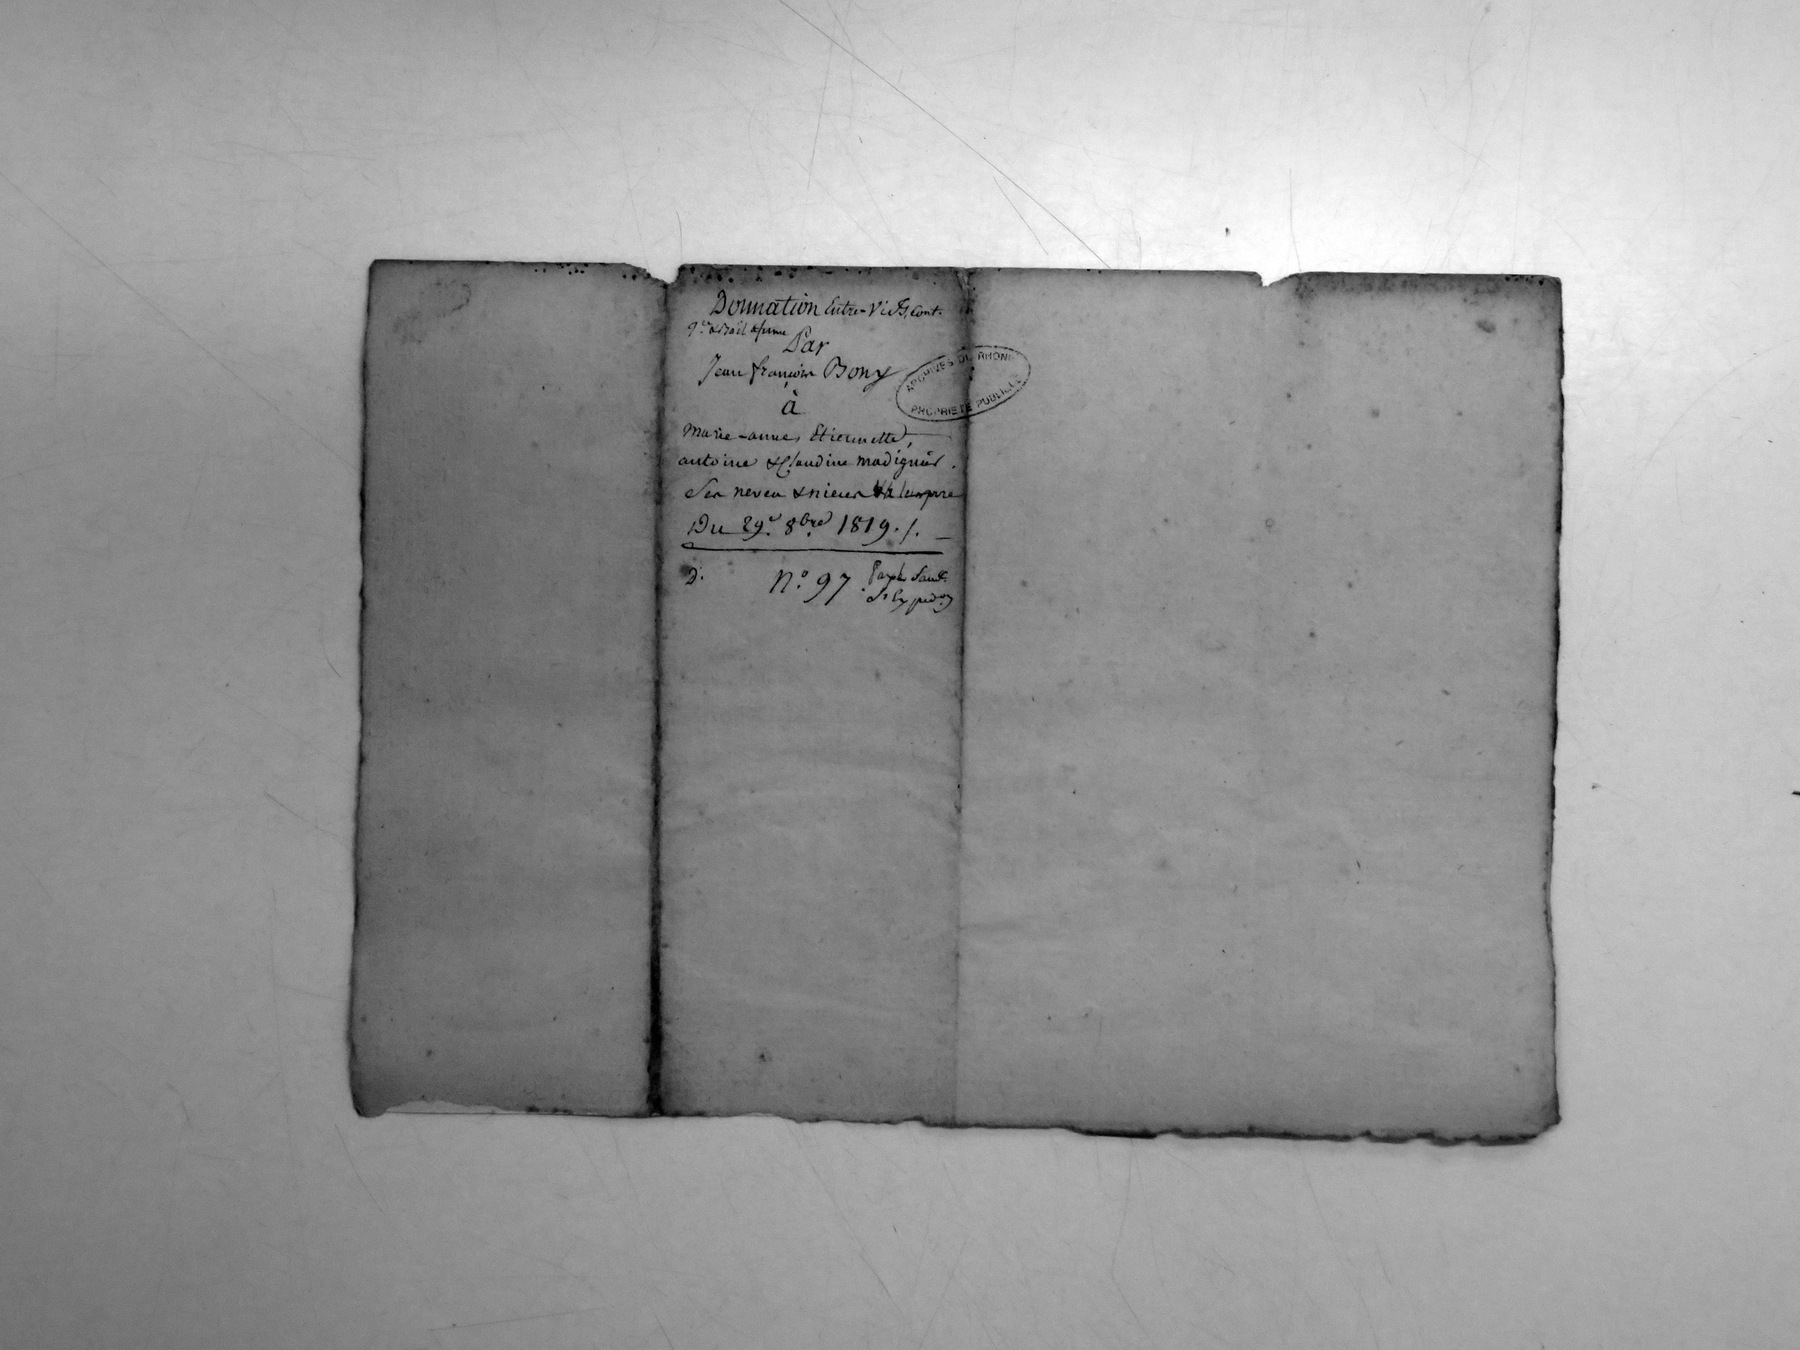 Donnation Entre-Vifs, cont.
q.ce & Bail à ferme
Par
Jean françois Bony
à
Marie-anne, Etiennette,
antoine & Claudine madignier.
Ses neveu & nieces & à leur pere
Du 29.e 8bre. 1819./.
D. N.o 97.
ARCHIVES DU RHONE
PROPRIETE PUBLIQUE